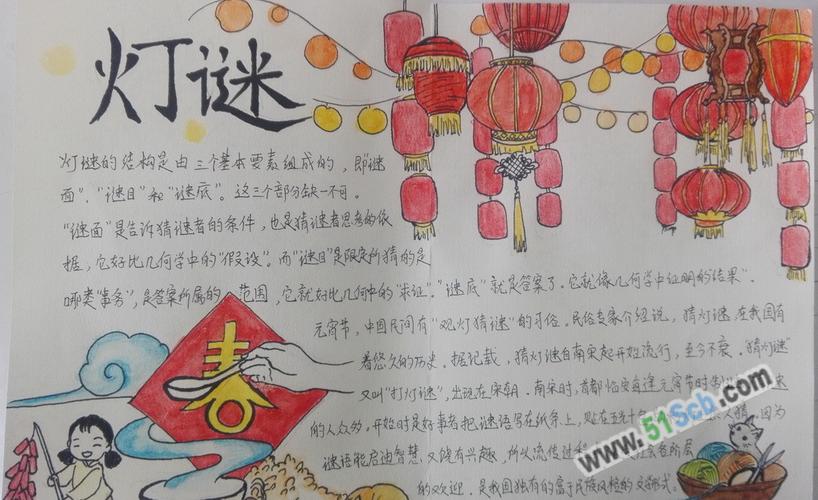 灯谜
灯谜的结构是由三个基本要素组成的，即"谜
面"、"谜目"和"谜底"。这三个部分缺一不可。
"谜面"是告诉猜谜者的条件，也是猜谜者思考的依
据，它好比几何学中的"假设"。而"谜目"是限定所猜的是
哪类"事务"，是答案所属的范围，它就好比几何中的"求证"。"谜底"就是答案了。它就像几何学中证明的结果"。
元宵节，中国民间有"观灯猜谜"的习俗。民俗专家介绍说，猜灯谜在我国有
着悠久的历史。据记载，猜灯谜自南宋起开始流行，至今不衰。猜灯谜"
又叫"打灯谜"，出现在宋朝。南宋时，首都临安每逢元宵节时制 谜
的人众多，开始时是好事者把谜语写在纸条上，贴在五 人猜，因为
谜语能启迪智慧又饶有兴趣，所以流传过 各阶层
的欢迎。是我国独有的富于民族风格的文 形式。
春
www.51Scb.com